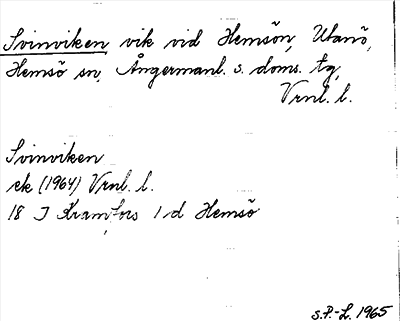 Svinviken vik vid Hemsön, Utanö,
Hemsö sn, Ångermanl. s. doms. tg,
Vrnl. l.
Svinviken
ek (1964) Vrnl. l.
18 J Kramfors 1 d Hemsö
S.P.-L. 1965